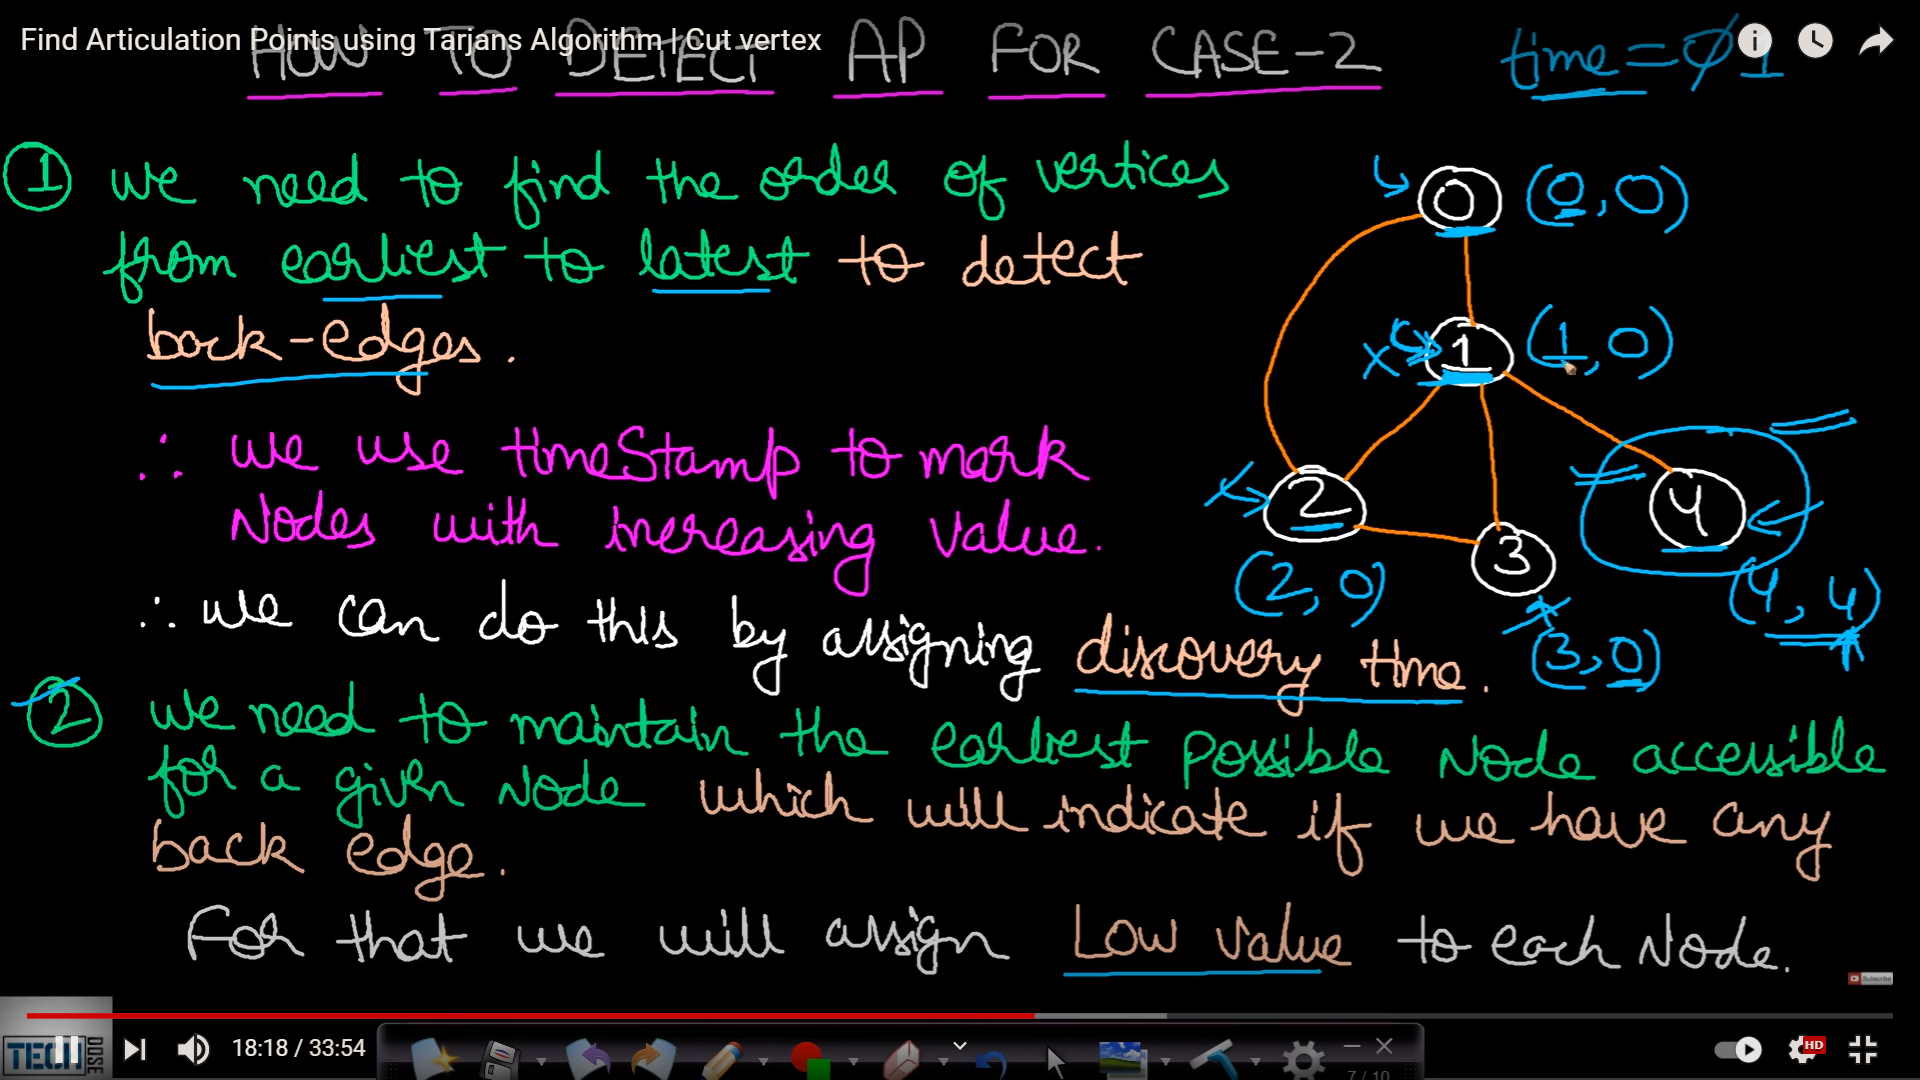 Find Articulation Points using Tarjans Algorithm | Cut vertex
HOW TO DETECT AP FOR CASE-2
time = 0 1
1 we need to find the order of vertices
from earliest to latest to detect
back-edges.
∴ we use timeStamp to mark
Nodes with increasing value.
∴ we can do this by assigning discovery time.
2 we need to maintain the earliest possible Node accessible
for a given Node which will indicate if we have any
back edge.
For that we will assign Low value to each Node.
0 (0,0)
1 (1,0)
2
(2,0)
3
(3,0)
4
(4,4)
Subscribe
TECH DOSE
18:18 / 33:54
7 / 10
HD